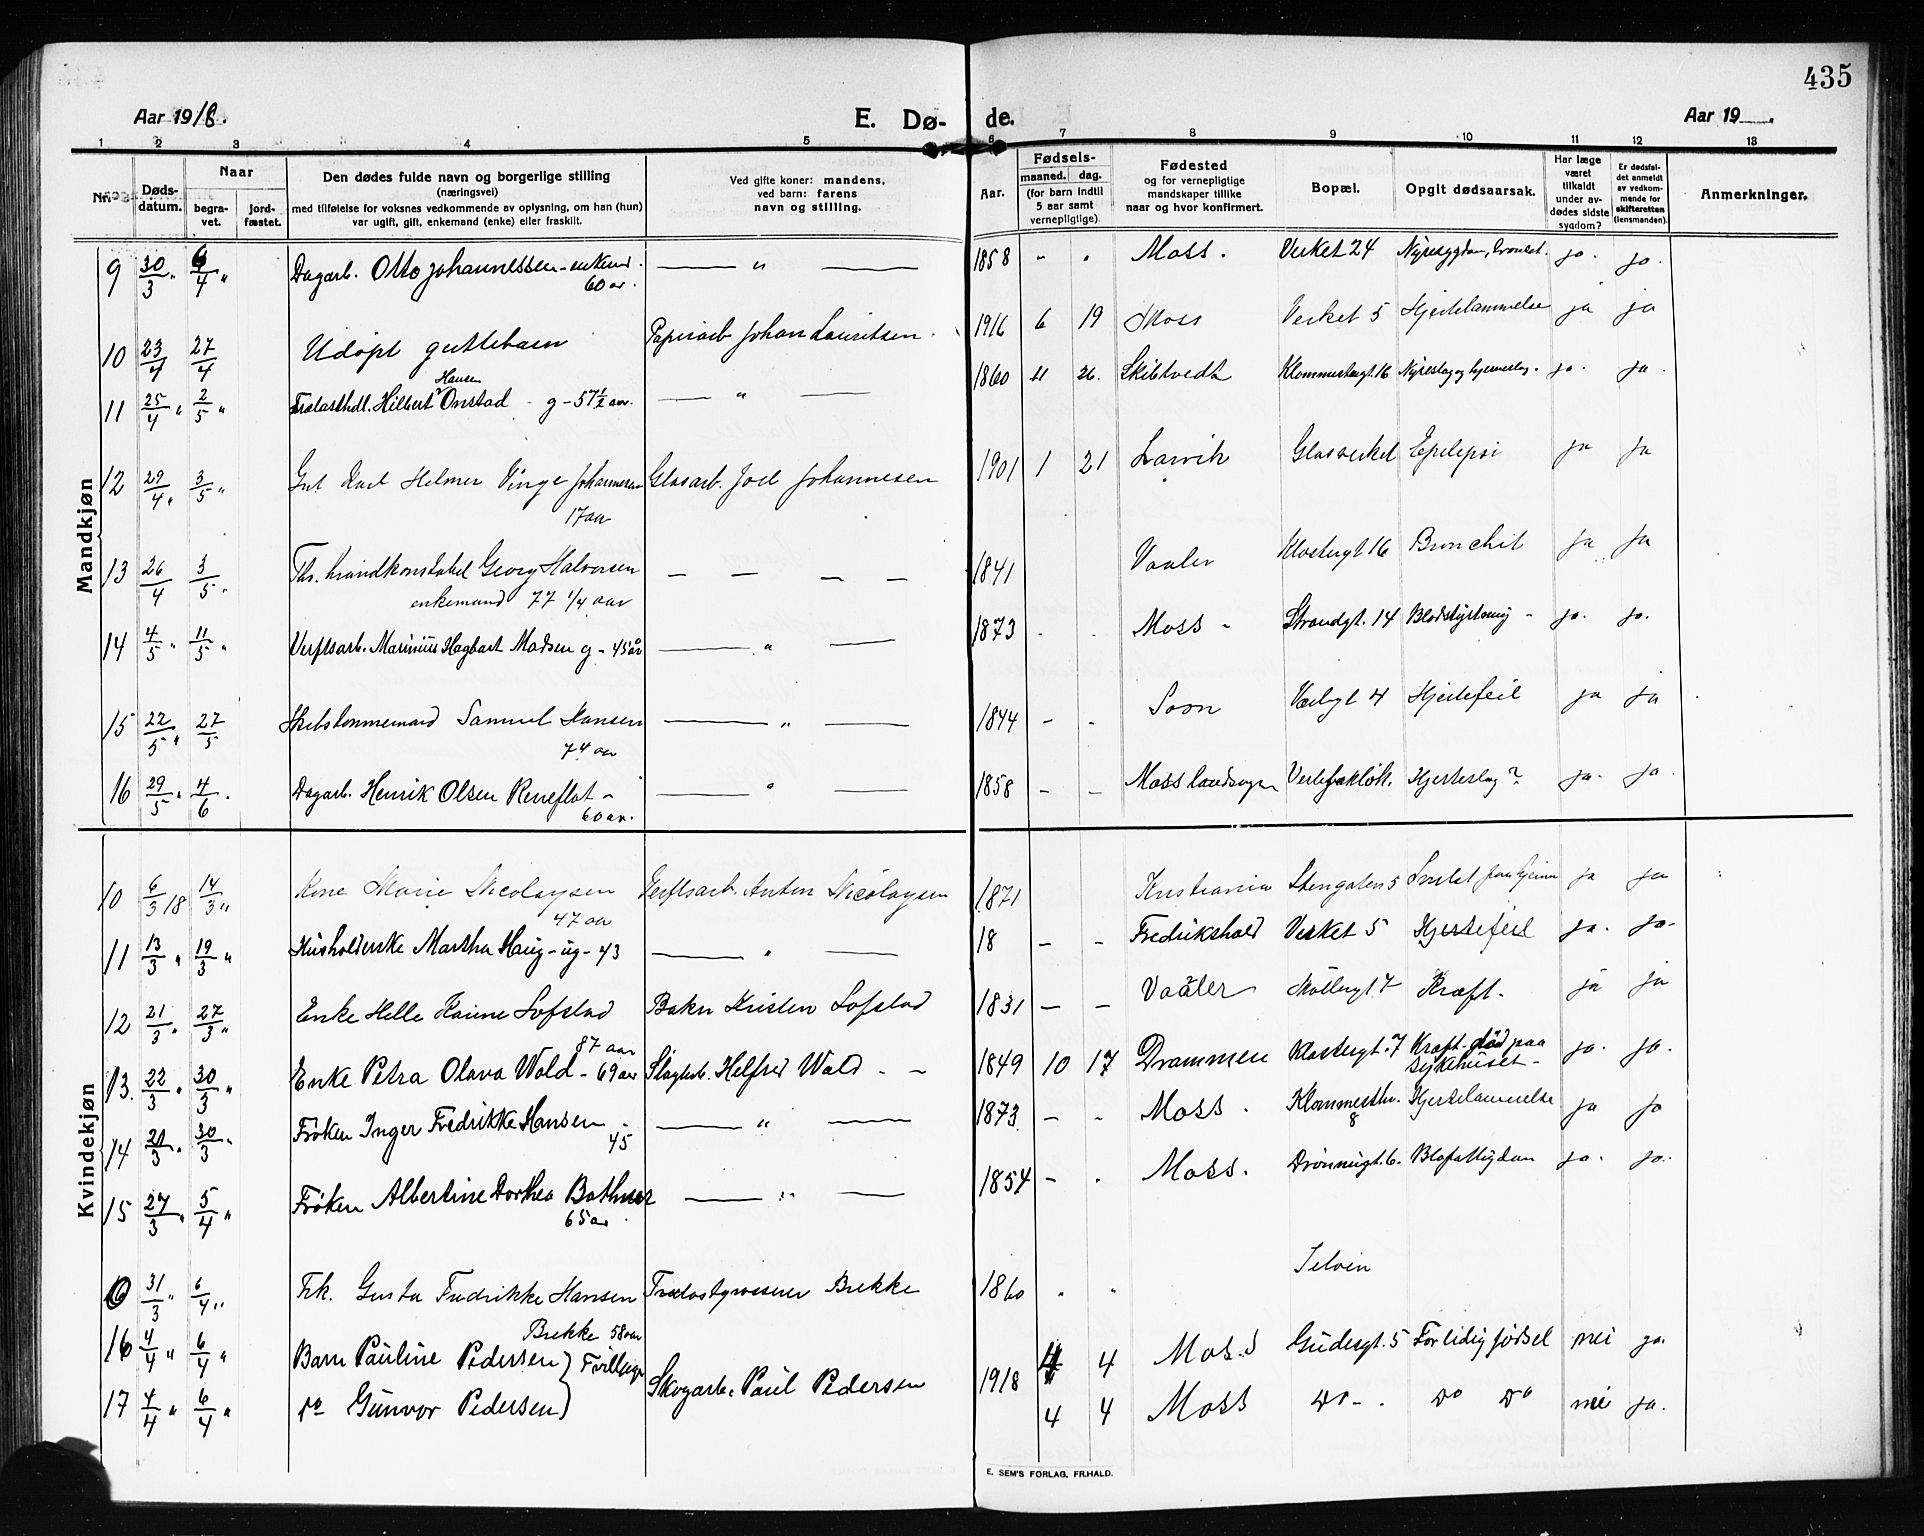 435
Aar 1918.
E. Dø- de.
Aar 19 .
1 2 3 4 5 6 7 8 9 10 11 12 13
Nr.
Døds-datum.
Naar
begra-vet.
jord-fæstet.
Den dødes fulde navn og borgerlige stilling
(næringsvei)
med tilføielse for voksnes vedkommende av oplysning, om han (hun)
var ugift, gift, enkemand (enke) eller fraskilt.
Ved gifte koner: mandens,
ved barn: farens
navn og stilling.
Aar.
Fødsels-
maaned. dag.
(for barn indtil
5 aar samt
vernepligtige).
Fødested
og for vernepligtige
mandskaper tillike
naar og hvor konfirmert.
Bopæl.
Opgit dødsaarsak.
Har læge
været
tilkaldt
under av-
dødes sidste
sygdom?
Er dødsfal-
det anmeldt
av vedkom-
mende for
skifteretten
(lensmanden).
Anmerkninger.
Mandkjøn
9 30/3 " 6/4 " Dagarb. Otto Johannessen - enkem. 60 ar. — " — 1858 - " Moss. Verket 24 ja. ja.
10 23/4 27/4 Udøpt guttebarn Papirarb Johan Lauritsen. 1916 6 19 Moss Verket 5 Hjertelammelse ja ja
11 25/4 " 2/5 " Trælasthdl. Hilbert Hansen Onstad - g - 57 1/2 aar. — " — 1860 11 26. Skibtvedt 16 ja. ja.
12 29/4 " 3/5 " Gut Karl Helmer Vinge Johannesen 17 aar Glasarb. Joel Johannesen 1901 1 21 Larvik Glasverket Epilepsi ja ja
13 26/4 3/5 " Fhv. brandkonstabel Georg Halvorsen enkemand 77 1/4 aar — — — — 1841 Vaaler Klostergt 16 Bronchit ja ja
14 4/5 " 11/5 " Verftsarb. Marinius Hagbart Madsen g - 45 år — " — 1873 - - Moss - Strandgt. 14 Blodstyrtning - ja. ja.
15 22/5 " 27/5 Skibstømmermand Samuel Hansen 74 aar — " — 1844 - - Soon 4 Hjertefeil ja ja
16 29/5 " 4/6 . Dagarb. Henrik Olsen Reneflot - 60 ar. — " — 1858 - - Moss landsogn Hjerteslag? ja. ja.
Kvindekjøn
10 6/3 18 14/3 " Kone Marie Nicolaysen 47 aar Verftsarb. Anton Nicolaysen 1871 Kristiania Stengaten 5 ja ja
11 13/3 " 19/3 " Husholderske Martha Haug - ug - 43 — " — 18 - - Fredrikshald Verket 5 Hjertefeil ja. ja.
12 21/3 " 27/3 " Enke Helle Karine Lofstad 87 aar Baker Kristen Lofstad 1831 - - Vaaler Møllergt 7 Kræft. ja ja
13. 22/3 " 30/3 " Enke Petra Olava Wold - 69 aar Slagterb. Helfred Wold - - 1849 10 17 Drammen Klostergt. 7 Kræft. død paa sykehuset - ja. ja.
14 21/3 " 30/3 " Frøken Inger Fredrikke Hansen - 45 — " — 1873 - - Moss. 8 Hjertelammelse ja ja
15 27/3 " 5/4 " Frøken Albertine Dorthea Bothner 65 ar. — " — 1854 - . Moss. Dronningt. 6. ja. ja.
0 31/3 " 6/4 " Frk. Gusta Fredrikke Hansen Brekke 58 aar Brekke 1860 " " Jeløien
16 4/4 " 6/4 " Barn Pauline Pedersen } Tvillinger Skogarb. Paul Pedersen 1918 4 4 Moss Gudesgt. 5 For tidlig fødsel nei ja.
17 4/4 " 6/4 " do Gunvor Pedersen } 4 4 Moss Do - . Do Do nei ja.
E. SEM'S FORLAG, FR.HALD.